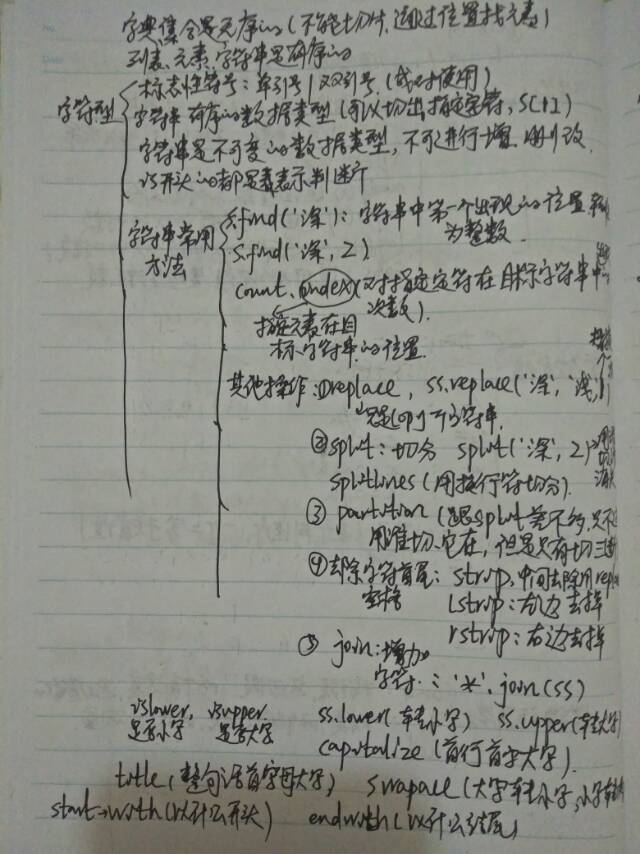 字典集合是无序的(不能切片,通过位置找元素)
列表、元素、字符串是有序的
字符型 标志性符号:单引号/双引号(成对使用)
字符串有序的数据类型(可以切出指定字符,
字符串是不可变的数据类型,不可进行增删改.
is开头的都是表示判断
字符串常用方法
s.find('深'):字符串中第一个出现的位置
为整数.
s.find('深',2)
count、index(对于指定字符在目标字符串中
次数).
指定元素在目
标字符串的位置.
其他操作:①replace,ss.replace('深','浅',)
只是copy了字符串.
②split:切分 split('深',2)
splitlines(用换行符切分).
③ partition(跟split差不多,只不
用谁切,它在,但是只有切三
④去除字符首尾空格:strip,中间去除用
lstrip:左边去掉
rstrip:右边去掉
⑤ join:增加
字符.:'*'.join(ss)
islower, isupper. ss.lower(转小字) ss.upper(转大字)
是否小字 是否大字 capitalize(首行首字大字).
title(整句话首字母大字) swapcase(大字转小字,小字
startswith(以什么开头) endwith(以什么结尾)